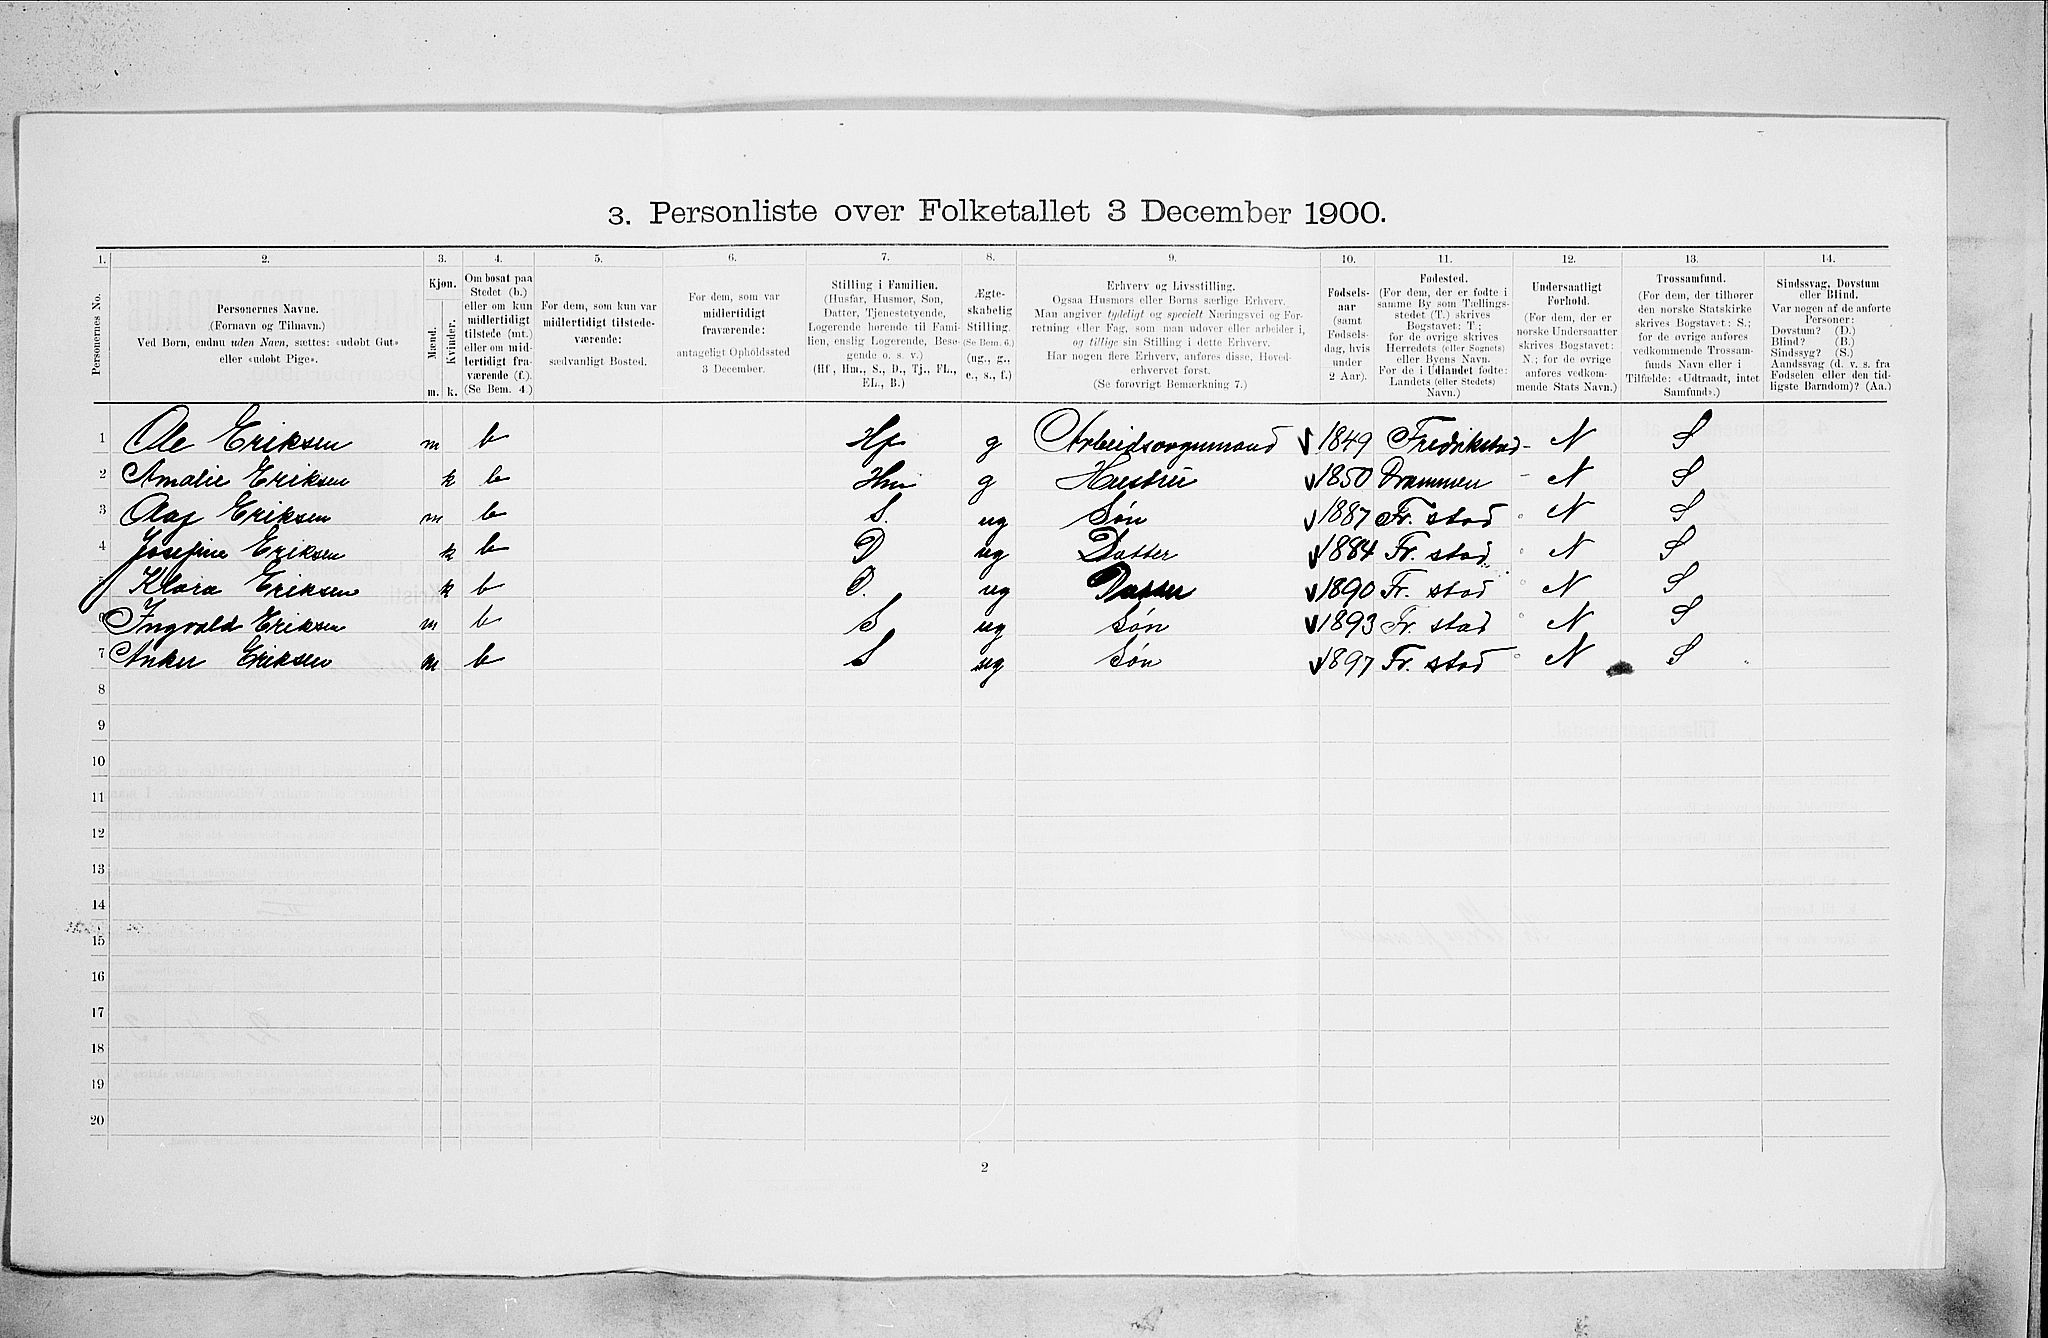 3. Personliste over Folketallet 3 December 1900.
1. 2. 3. 4. 5. 6. 7. 8. 9. 10. 11. 12. 13. 14.
Personernes No.
Personernes Navne.
(Fornavn og Tilnavn.)
Ved Børn, endnu uden Navn, sættes: «udøbt Gut»
eller «udøbt Pige».
Kjøn.
Mænd.
Kvinder.
m. k.
Om bosat paa
Stedet (b.)
eller om kun
midlertidigt
tilstede (mt.)
eller om mid-
lertidigt fra-
værende (f.).
(Se Bem. 4.)
For dem, som kun var
midlertidigt tilstede-
værende:
sædvanligt Bosted.
For dem, som var
midlertidigt
fraværende:
antageligt Opholdssted
3 December.
Stilling i Familien.
(Husfar, Husmor, Søn,
Datter, Tjenestetyende,
Logerende hørende til Fami-
lien, enslig Logerende, Besø-
gende o. s. v.)
(Hf., Hm., S., D., Tj., FL.,
EL., B.)
Ægte-
skabelig
Stilling.
(Se Bem. 6.)
(ug., g.,
e., s., f.)
Erhverv og Livsstilling.
Ogsaa Husmors eller Børns særlige Erhverv.
Man angiver tydeligt og specielt Næringsvei og For-
retning eller Fag, som man udøver eller arbeider i,
og tillige sin Stilling i dette Erhverv.
Har nogen flere Erhverv, anføres disse, Hoved-
erhvervet først.
(Se forøvrigt Bemærkning 7.)
Fødsels-
aar
(samt
Fødsels-
dag, hvis
under
2 Aar).
Fødested.
(For dem, der er fødte i
samme By som Tællings-
stedet (T.) skrives
Bogstavet: T;
for de øvrige skrives
Herredets (eller Sognets)
eller Byens Navn.
For de i Udlandet fødte:
Landets (eller Stedets)
Navn.)
Undersaatligt
Forhold.
(For dem, der er
norske Undersaatter
skrives Bogstavet:
N.; for de øvrige
anføres vedkom-
mende Stats Navn.)
Trossamfund.
(For dem, der tilhører
den norske Statskirke
skrives Bogstavet: S.;
for de øvrige anføres
vedkommende Trossam-
funds Navn eller i
Tilfælde: «Udtraadt, intet
Samfund».)
Sindssvag, Døvstum
eller Blind.
Var nogen af de anførte
Personer:
Døvstum? (D.)
Blind? (B.)
Sindssyg? (S.)
Aandssvag (d. v. s. fra
Fødselen eller den tid-
ligste Barndom)? (Aa.)
1 Ole Eriksen m b Hf g 1849 Fredrikstad N S
2 Amalie Eriksen k b Hm g Hustru 1850 Drammen N S
3 Eriksen m b S. ug Søn 1887 Fr. stad N S
4 Josefine Eriksen k b D ug Datter 1884 Fr. stad N S
Klara Eriksen k b D. ug Datter 1890 Fr. stad N S
6 Ingvald Eriksen m b S ug Søn 1893 Fr. stad N S
7 Anker Eriksen m b S ug Søn 1897 Fr. stad N S
8
9
10
11
12
13
14
15
16
17
18
19
20
2